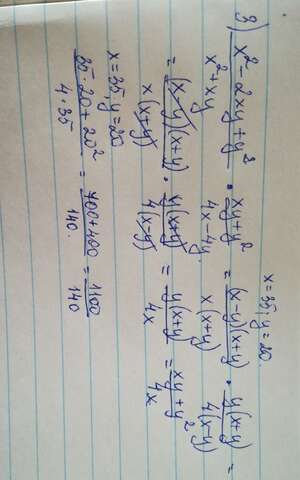 x=35; y=20.
3) (x² - 2xy + y²)/(x² + xy) · (xy + y²)/(4x - 4y) = (x-y)(x+y)/x(x+y) · y(x+y)/4(x-y) =
= (x-y)(x+y)/x(x+y) · y(x+y)/4(x-y) = y(x+y)/4x = (xy + y²)/4x
x=35, y=20
(35·20 + 20²)/(4·35) = (700+400)/140. = 1100/140